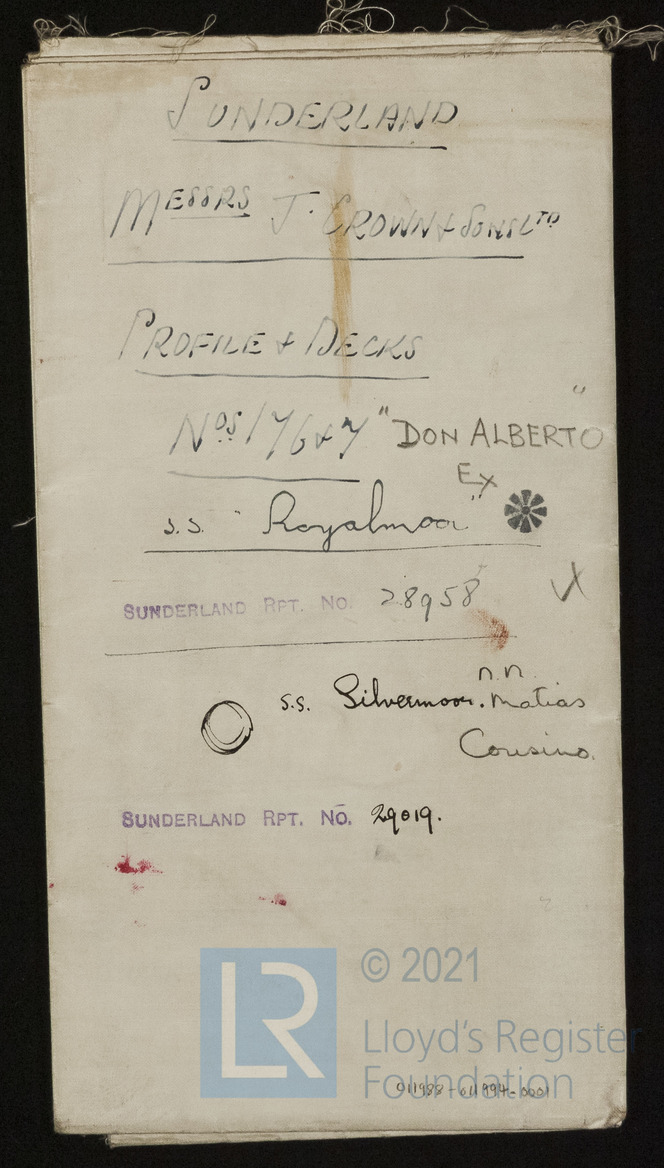 SUNDERLAND
MESSRS J. CROWN & SONS LTD
PROFILE & DECKS
NOS 176 & 7 "DON ALBERTO"
EX
S.S. "Royalmoor"
SUNDERLAND RPT. NO. 28958
S.S. Silvermoor. n.n. Matias
Cousino.
SUNDERLAND RPT. NO. 29019.
LR
© 2021
Lloyd's Register
Foundation
011988-011994-0001